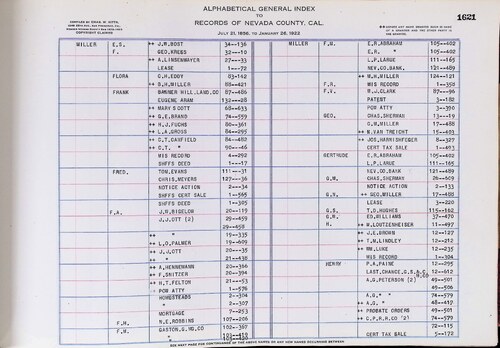 ALPHABETICAL GENERAL INDEX
TO
RECORDS OF NEVADA COUNTY, CAL.
JULY 21, 1856, TO JANUARY 28, 1922
1621
MILLER E.S. ++ J.M. BOST 34--136
F. GEO. KREBS 32--10
++ A. LINSENMAYER 27--33
LEASE 1--72
FLORA G.H. EDDY 83-142
++ S.H. MILLER 88--421
FRANK BANNER HILL LAND CO 87--486
EUGENE ARAM 132--28
++ MARY SCOTT 68--633
++ G.E. BRAND 74--559
++ H.J. FUCHS 80--361
++ L.A. GROSS 84--295
++ G.T. CAUFIELD 84--482
++ G.T. " 90--46
MIS RECORD 4--292
SHFFS DEED 1--17
FRED. TOM. EVANS 111--31
CHRIS. MEYERS 127--36
NOTICE ACTION 2--34
SHFFS CERT SALE 1--565
SHFFS DEED 1--305
F.A. J.R. RIGELOW 20--119
J.J. OTT (2) 29--459
29--458
++ " 19--335
++ L.O. PALMER 19--609
++ J.J. OTT 20--35
++ " 21--430
++ A. HENNEMANN 20--366
++ F. SNITZER 20--394
++ H.T. FELTON 21--53
POW ATTY 1--574
HOMESTEADS 2--304
" 2--307
MORTGAGE 7--253
F.H. M.E. ROBBINS 107--206
F.M. GASTON, G. MG. CO 102--397
MILLER F.M. E.R. ABRAHAM 105--402
E.R. " 105--402
L.P. LARUE 111--165
REV. CO. BANK 121--489
++ W.H. MILLER 124--121
F.R. MIS RECORD 1--358
F.V. M.J. CLARK 87--96
PATENT 3--182
POW ATTY 3--390
GEO. CHAS. SHERMAN 13--19
G.W. MILLER 17--488
++ M. VAN TREIGHT 15--403
++ JOS. HARRISHFEGER 8--327
CERT TAX SALE 1--493
GERTRUDE E.R. ABRAHAM 105--402
L.P. LARUE 111--165
REV. CO. BANK 121--489
G.W. CHAS. SHERMAN 26--409
NOTICE ACTION 2--133
G.V. ++ GEO. MILLER 17--488
LEASE 3--220
G.S. T.O. HUGHES 115--162
G.W. ED. WILLIAMS 37--470
H. ++ M. LOUTZENHEISER 11--497
++ J.E. BROWN 12--127
++ T.M. LINDLEY 12--212
++ WM. LUKE 12--235
MIS RECORD 1--304
HENRY P.A. PAINE 12--295
LAST. CHANCE, G.S. & C. 12--612
A.G. PETERSON (2) 49--501
49--506
A.G. " " 74--579
++ A.G. " 48--417
++ PROBATE ORDERS 49--501
++ C.P.R.R. CO "2" 74--579
72--115
CERT TAX SALE 5--172
SEE NEXT PAGE FOR CONTINUANCE OF THE ABOVE CARDS OR ANY NEW NAMES OCCURRING BETWEEN